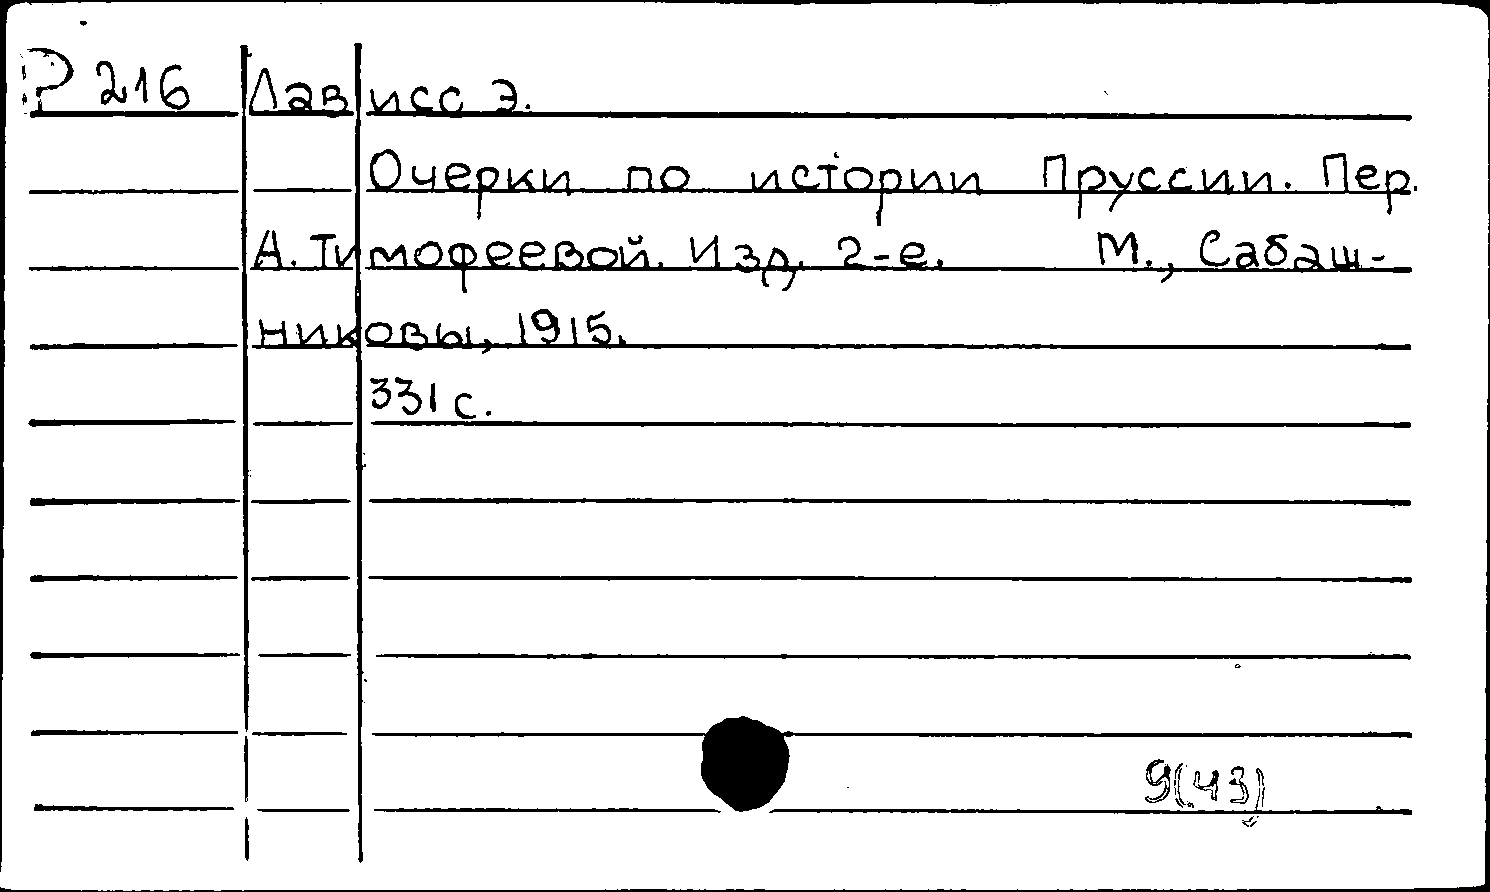 Р 216 Лависс Э.
Очерки по истории Пруссии. Пер.
А. Тимофеевой. Изд. 2-е. М., Сабаш-
никовы, 1915.
331 с.
9(43)